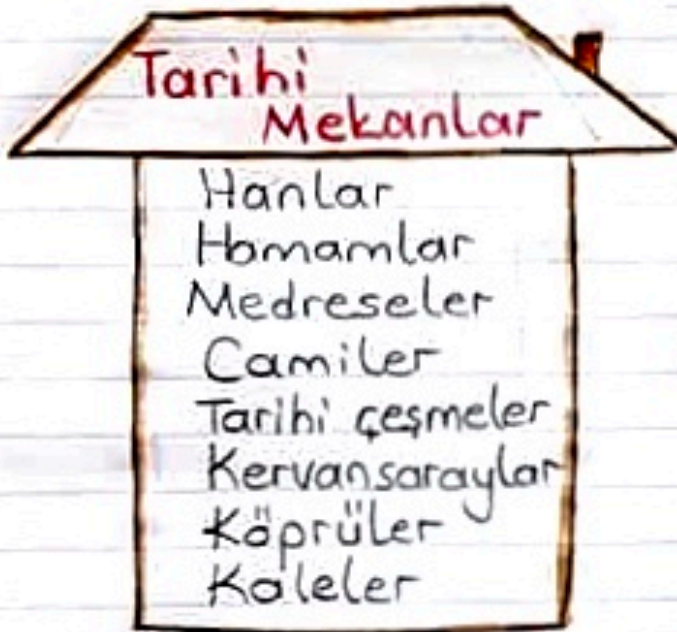 Tarihi
Mekanlar
Hanlar
Hamamlar
Medreseler
Camiler
Tarihi çeşmeler
Kervansaraylar
Köprüler
Kaleler